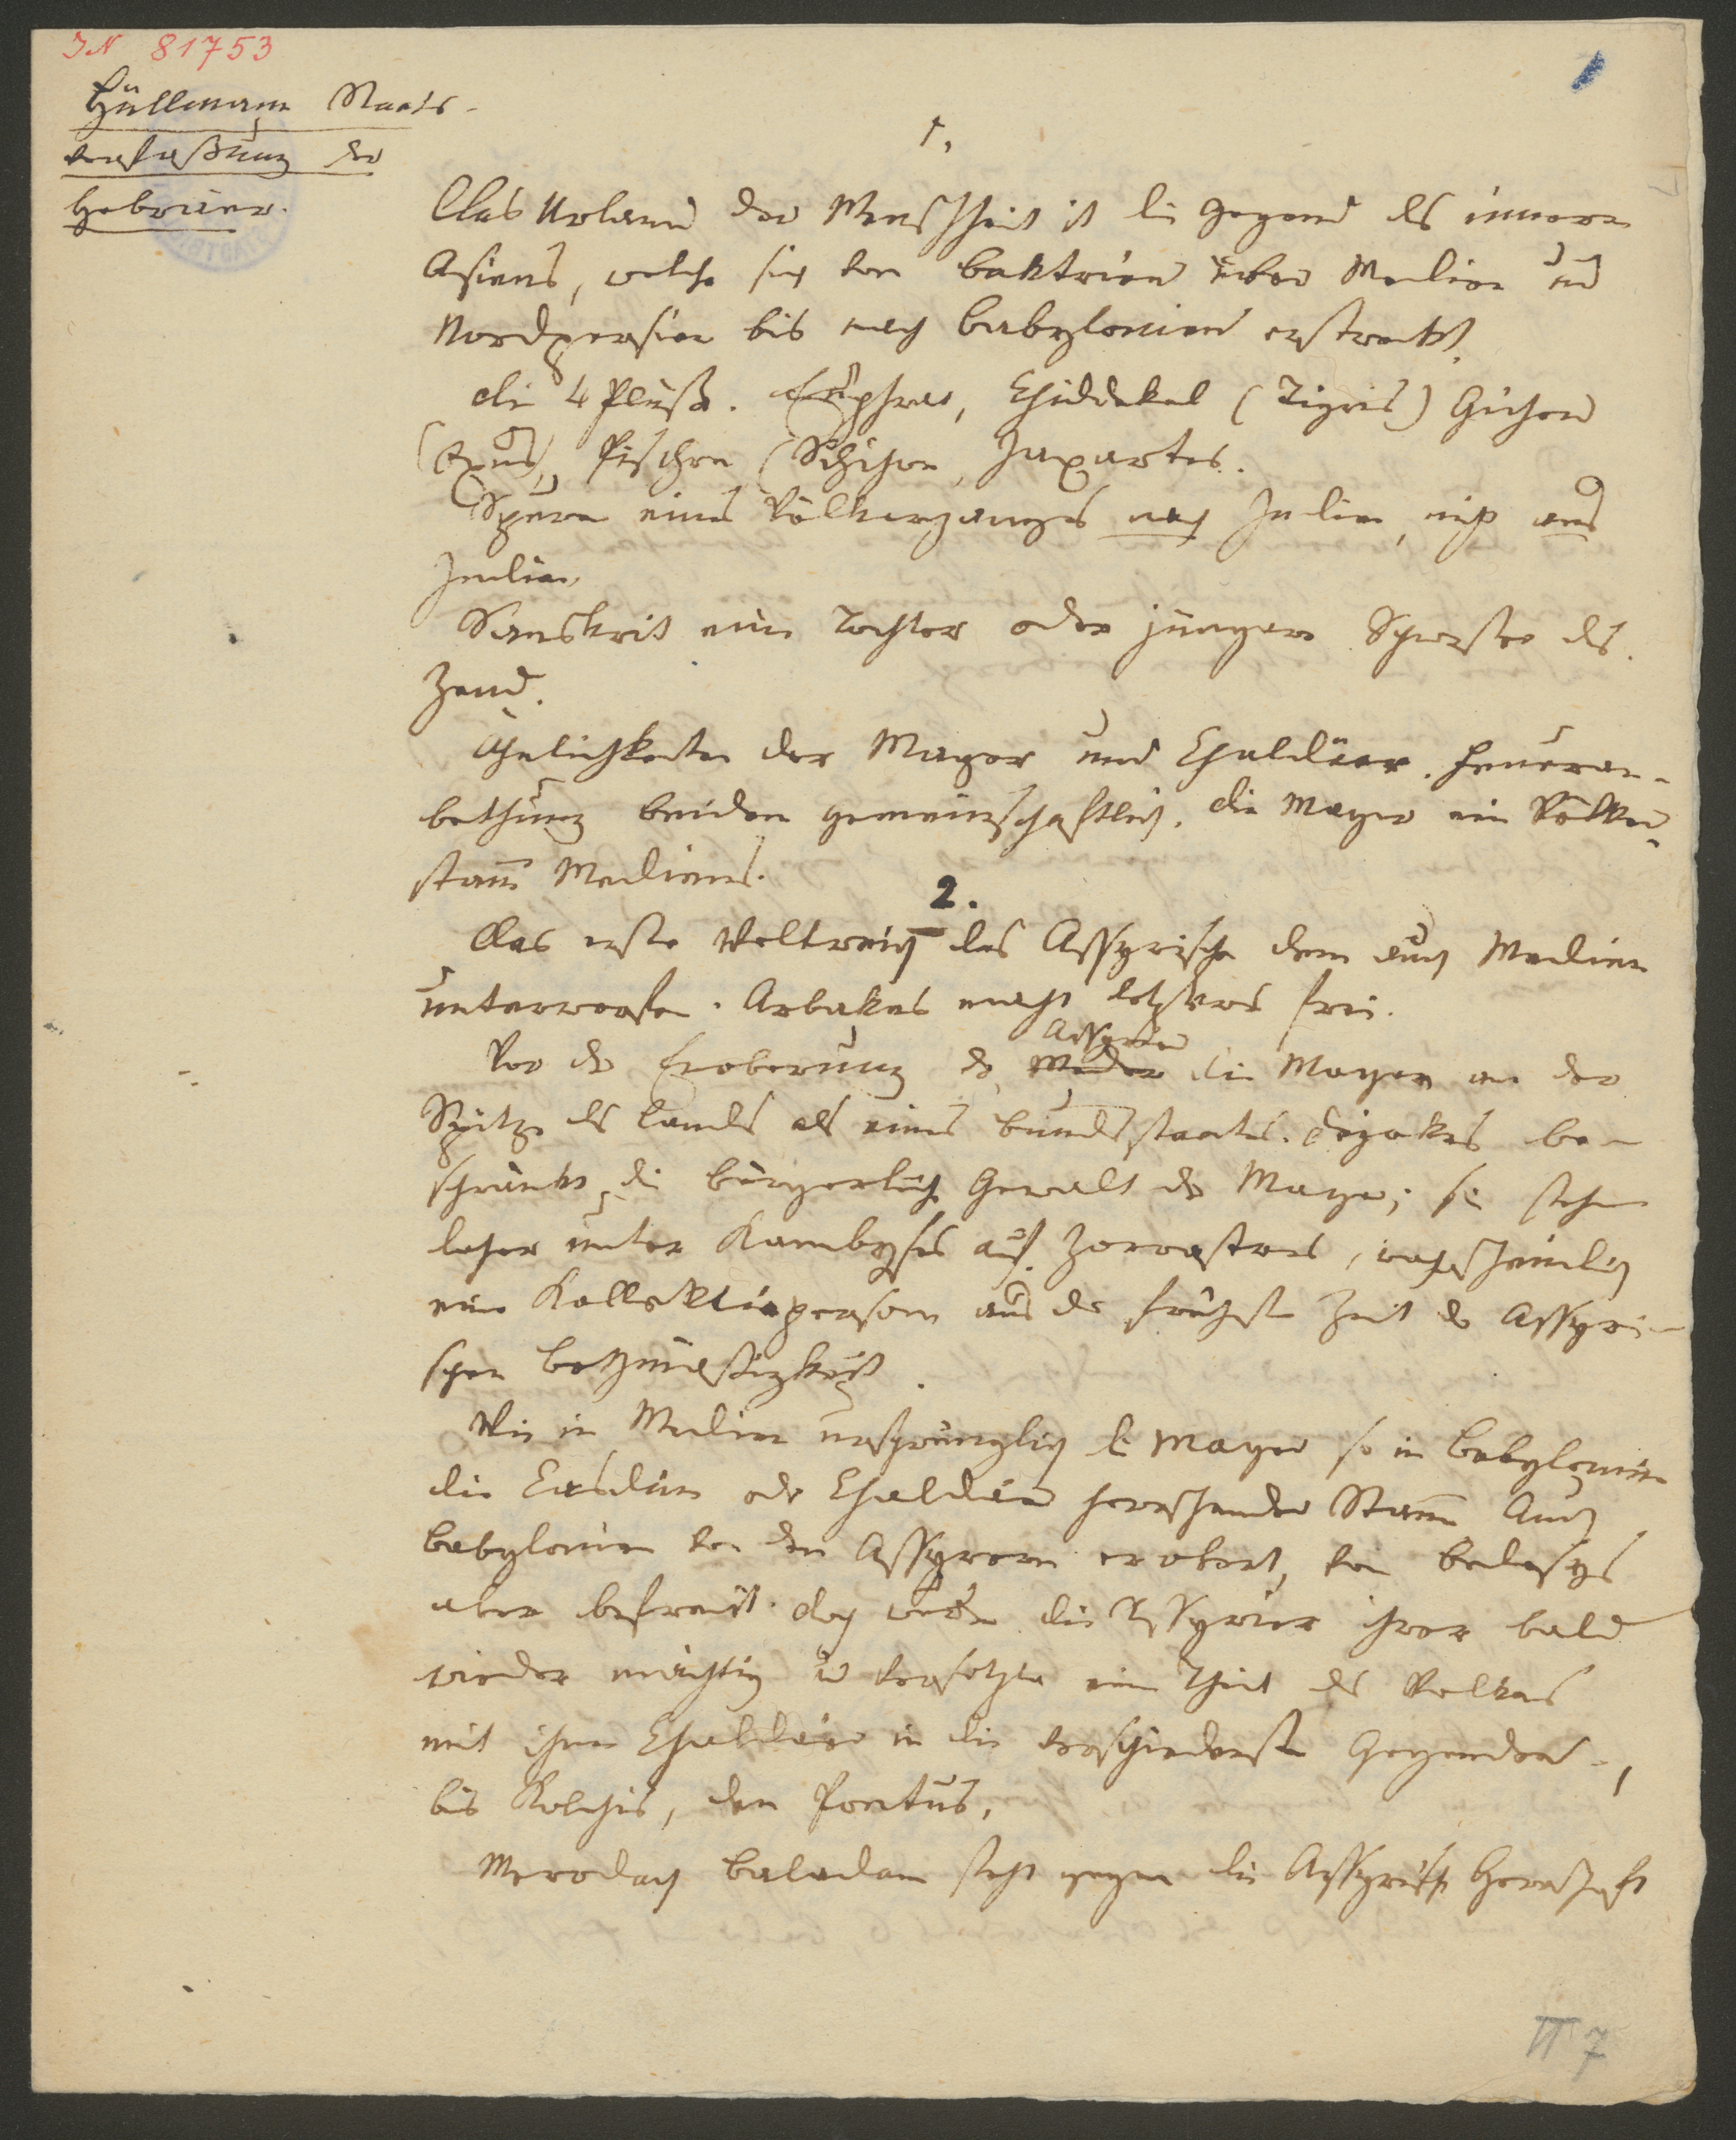 IN 81753
Hüllmann Staats-
verfaßung der
Hebräer.
1.
Das Urland der Menschheit ist die Gegend des innern
Asiens, welche sich von Baktrien über Medien und
Nordpersien bis nach Babylonien erstreckt.
die 4 Flüße. Euphrat, Chiddekel (Tigris) Gichon
(Oxus), Pischon (Schihon, Jaxartes.
Spuren eines Völkerganges nach Indien, nicht aus
Indien.
Sanskrit eine Tochter oder jüngere Schwester des
Zend.
Ähnlichkeiten der Mager und Chaldäer. Feueran-
bethung beiden gemeinschaftlich. die Mager ein Völker-
stam̄ Mediens.
2.
Das erste Weltreich das Assyrische dem auch Medien
unterworfen. Arbakes macht letzteres frei.
Assyrier
Vor der Eroberung der Meder die Mager an der
Spitze des Landes als eines Bundsstaates. Dejokes be-
schränkt die bürgerliche Gewalt der Mager; sie stehen
daher unter Kambyses auf. Zoroastres, wahrscheinlich
eine Kollektivperson aus der frühsten Zeit der Assyri-
schen Bothmäßigkeit.
Wie in Medien ursprünglich die Mager so in Babylonien
die Casdim oder Chaldäer herrschender Stam̄ Auch
Babylonien von den Assyrern erobert, von Belesys
aber befreit. doch werden die Assyrier ihrer bald
wieder mächtig u versetzten ein Theil des Volkes
mit ihren Chaldäer in die verschiedensten Gegenden,
bis Kolchis, den Pontus.
Merodach Baladan steht gegen die Assyrische Herrschaft
II 7